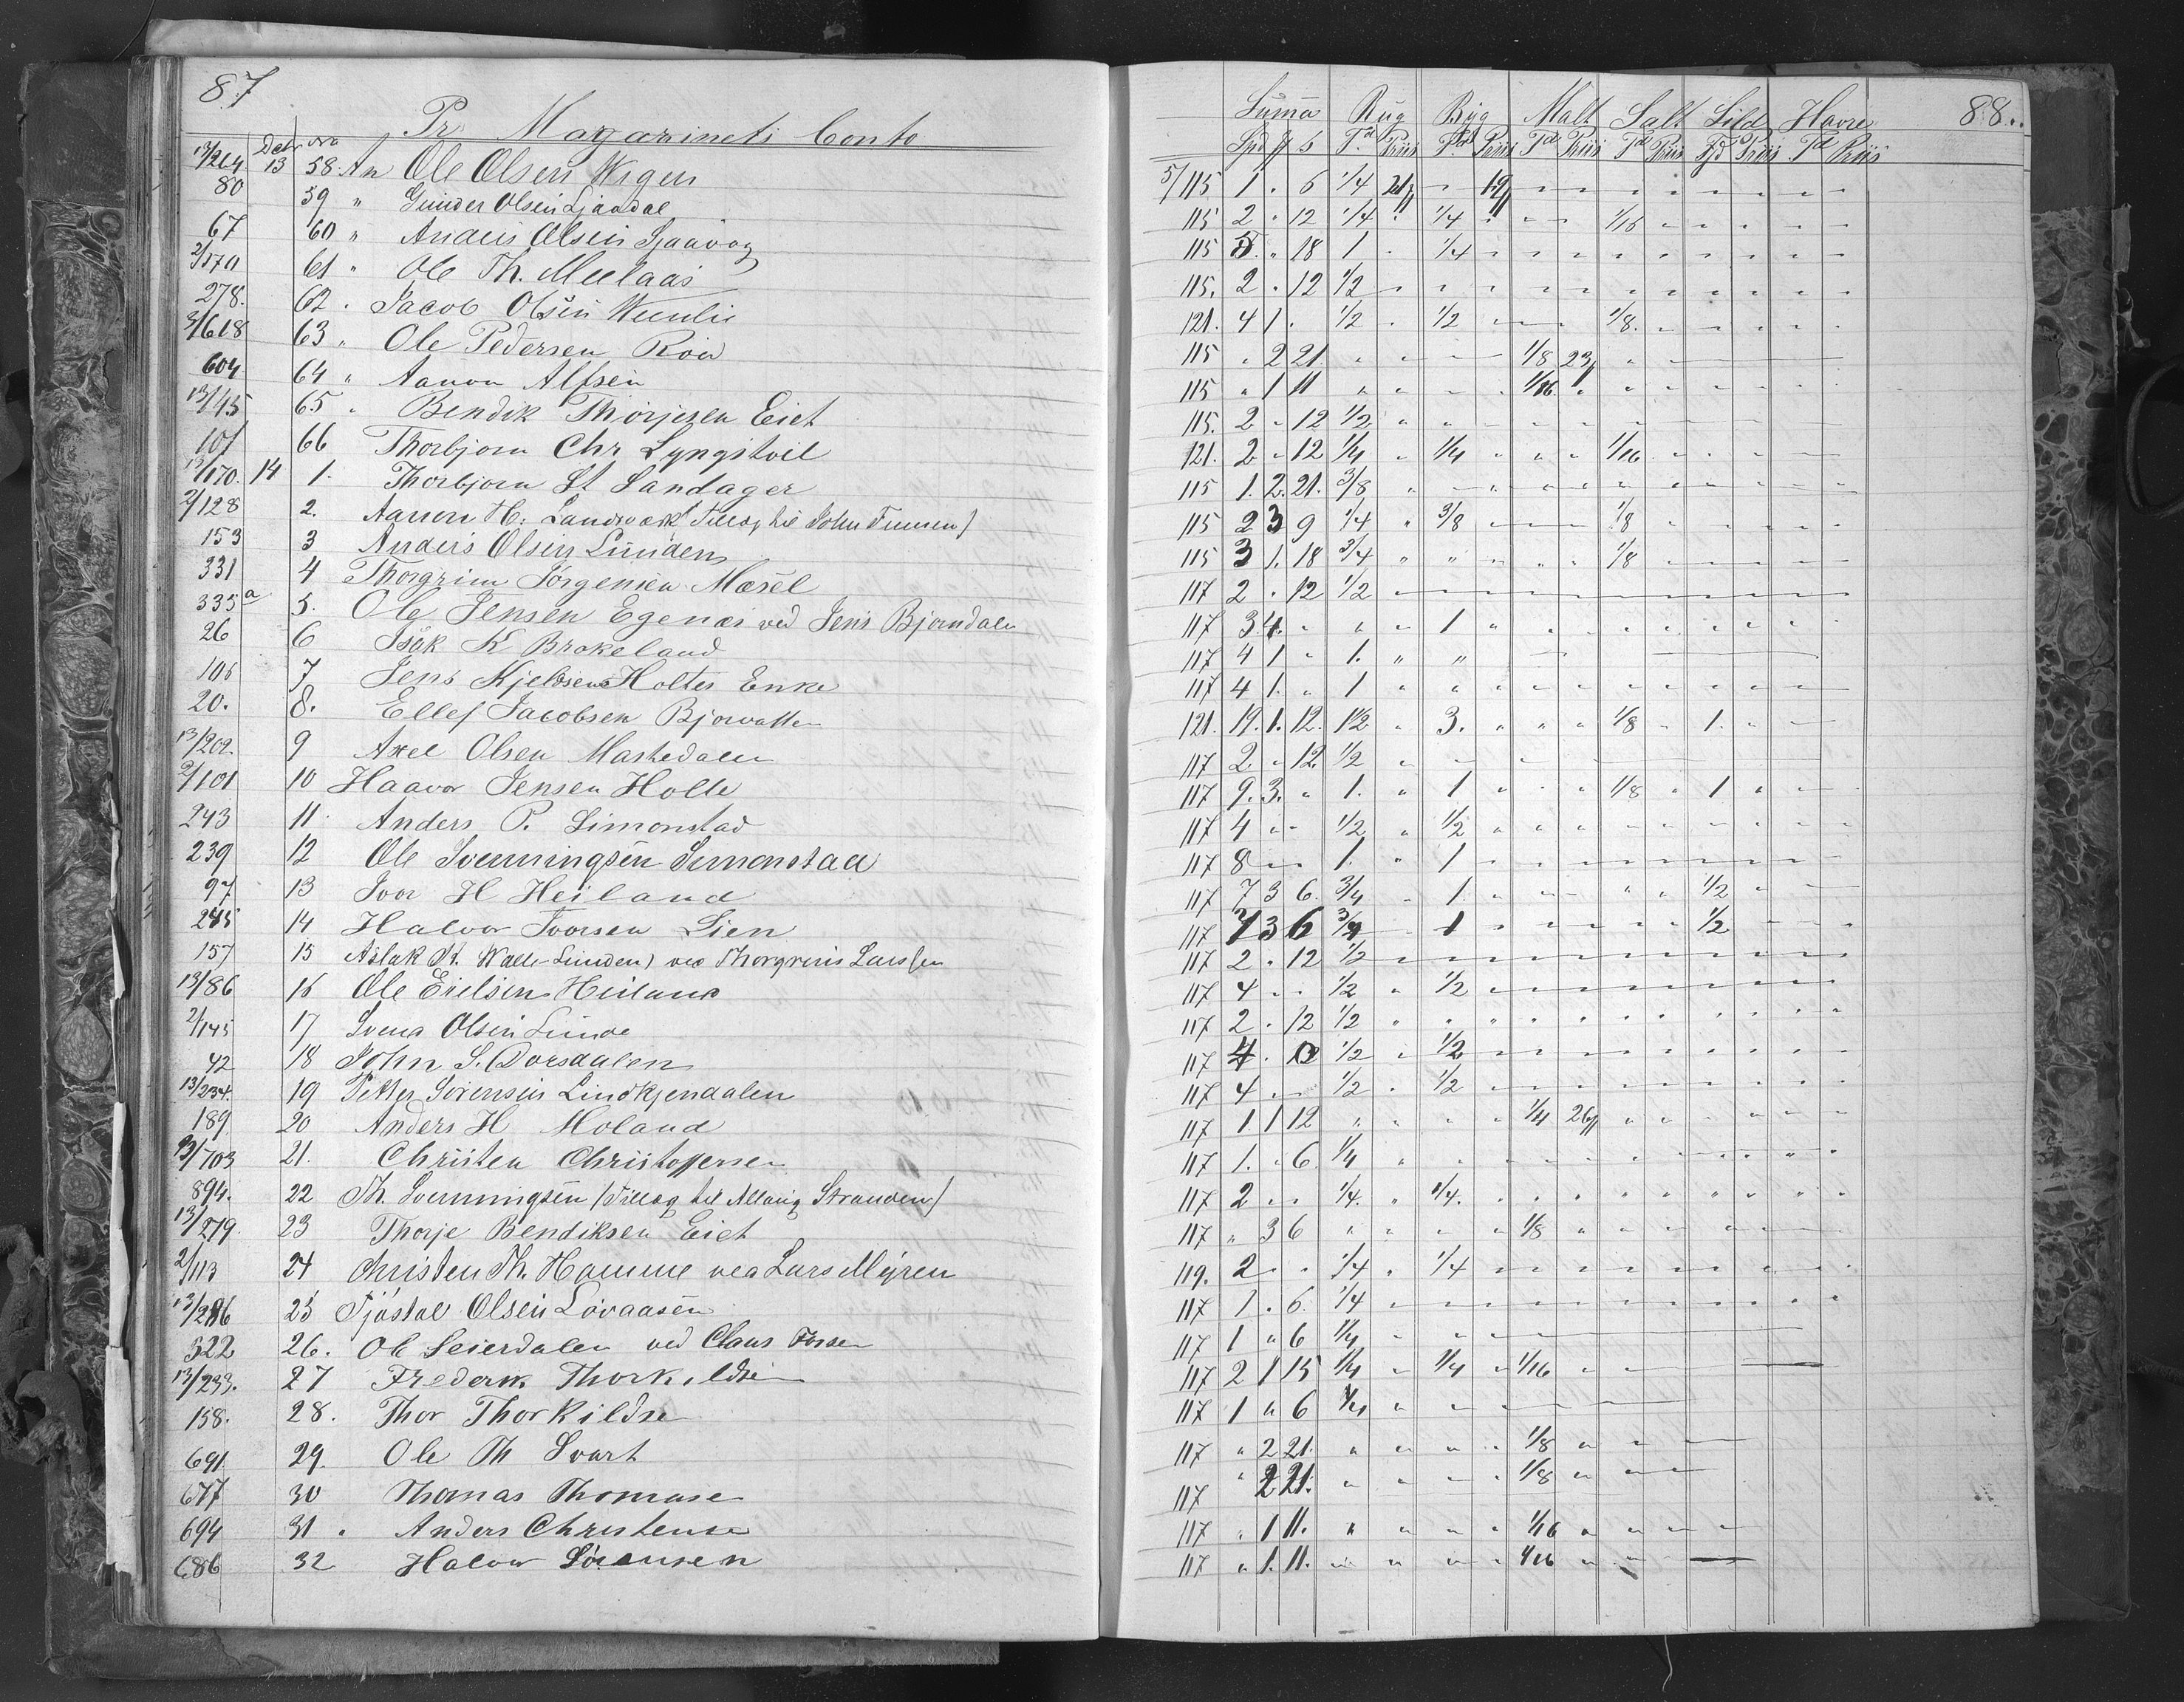 87
Pr Magazinets Conto
Dcbr No
13/264 13 58. An Ole Olsen Wigen
80 59 " Gunder Olsen Ljaadal
67 60 " Anders Olsen
2/170 61 " Ole Th. Meelaas
278. 62 " Jacob Olsen
3/618 63 " Ole Pedersen Roia
604 64 " Aanon Alfsen
13/45 65 " Bendik Thorjesen Eiet
101 66 Thorbjorn Chr Lyngstveit
13/170. 14 1. Thorbjorn St Sandager
2/128 2. Aanon H. Landvoerk Tillæg til John
153 3 Anders Olsen Lunden
331 4 Thorgrim Jørgensen Mæsel
335 a 5. Ole Jensen Egenæs ved Jens Bjorndalen
26 6 Isak K Brokeland
106 7 Jens Kjeldsens Holtes Enke
20. 8. Ellef Jacobsen Bjorvatten
13/202. 9 Axel Olsen Mastedalen
2/101 10 Haavor Jensen Holte
243 11. Anders P. Simonstad
239 12 Ole Svenningsen Simonstad
97 13 Ivor H Heiland
245 14 Halvor Ivorsen Lien
157 15 Aslak St. Walle Lunden) ved Thorgrim Larssen
13/86 16 Ole Eielsen Heiland
2/145 17 Svend Olsen Lunde
42 18 John S. Dorsdalen
13/234. 19 Petter Sørensen Lindkjendalen
189 20 Anders H Moland
13/703 21. Christen Christoffersen
894. 22 Th. Svenningsen (Tillæg til Stranden)
13/279. 23 Thorje Bendiksen Eiet
2/113 24 Christen Th. Homme ved Lars Myren
13/286 25 Tjøstol Olsen Lovaasen
322 26. Ole Seierdalen ved Claus
13/233. 27 Frederik Thorkildsen
158. 28. Thor Thorkildsen
691 29. Ole Th Svart
677 30 Thomas Thomase
694 31 " Anders Christense
686 32 Halvor Sørensen
88.
Suma Rug Byg Malt Salt Sild Havre
Spd ß Td Priis Td Priis Td Priis Td Priis Td Priis Td Priis
5/115 1 " 6 1/4 21 " 19
115 2 " 12 1/4 " 1/4 " " " 1/16
115 5 " 18 1 " 1/4
115. 2 " 12 1/2
121. 4 1 " 1/2 " 1/2 " " " 1/8
115 " 2 21 " " " " 1/8 23
115 " 1 11 " " " " 1/16
115. 2 " 12 1/2
121. 2 " 12 1/4 " 1/4 " " " 1/16
115 1. 2. 21. 3/8
115 2 3 9 1/4 " 3/8 " " " 1/8
115 3 1. 18 3/4 " " " " " 1/8
117 2 " 12 1/2
117 3 4. " " " 1
117 4 1 " 1. " "
117 4 1. " 1
121. 19. 1. 12. 1 1/2 " 3. " " " 1/8 " 1.
117 2 " 12 1/2
117 9. 3. " 1. " 1 " " " 1/8 " 1
117 4 " " 1/2 " 1/2
117 8 " " 1. " 1
117 7 3 6. 3/4 " 1. " " " " " 1/2
117 7 3 6 3/4 " 1 " " " " " 1/2
117 2 " 12 1/2
117 4 " " 1/2 " 1/2
117 2 " 12 1/2
117 4 " 1/2 " 1/2
117 4 " " 1/2 " 1/2
117 1. 1 12 " " " " 1/4 26
117 1. " 6. 1/4
117 2 " " 1/4. " 1/4.
117 " 3 6 " " " " 1/8
119. 2 " " 1/4 " 1/4
117 1 " 6. 1/4
117 1 " 6 1/4
117 2 1 15 1/4 " 1/4 " 1/16
117 1 " 6 1/4
117 " 2 21. " " " " 1/8
117 " 2 21. " " " " 1/8
117 " 1 11. " " " " 1/16
117 " 1. 11. " " " " 1/16